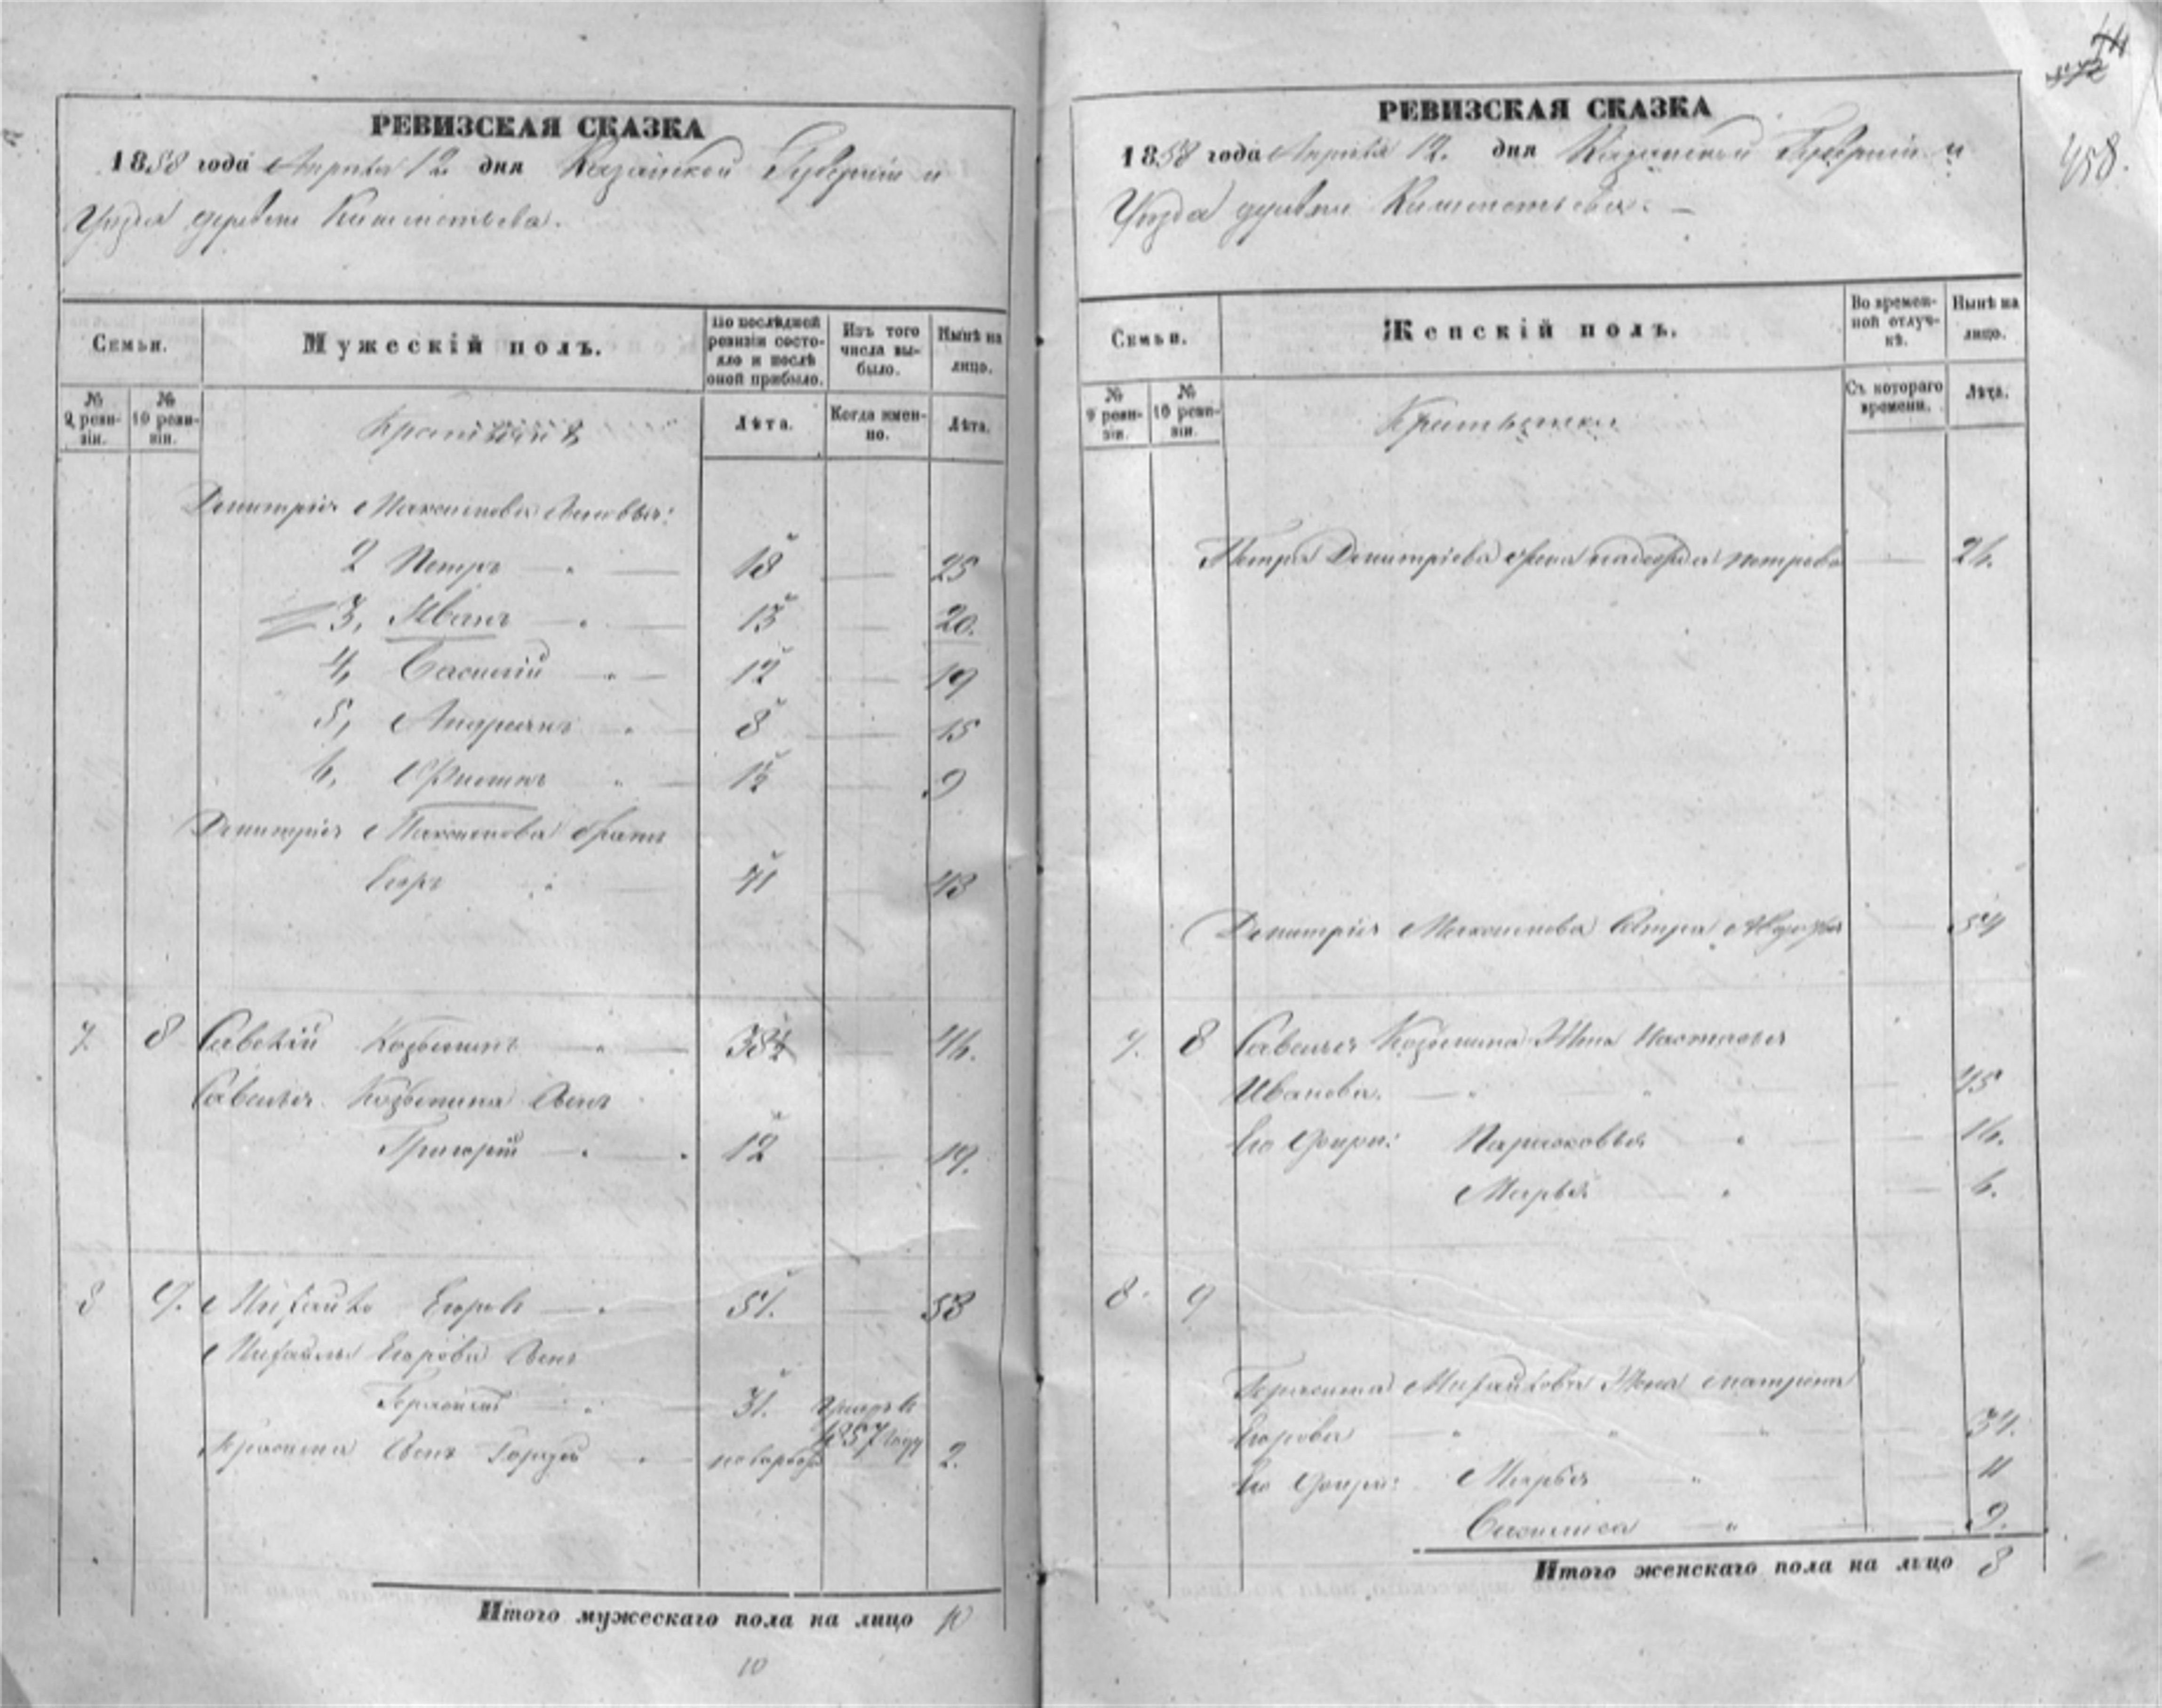 РЕВИЗСКАЯ СКАЗКА
1858 года Апреля 12 дня Казанской Губерніи и
Уезда деревни
Семьи.
Мужескій полъ.
По послѣдней ревизіи состояло и послѣ оной прибыло.
Изъ того числа выбыло.
Нынѣ на лицо.
№ 9 ревизіи.
№ 10 ревизіи.
Лѣта.
Когда именно.
Лѣта.
Дмитрія Максимова сыновья:
2 Петръ 18 25
3, Иванъ 13 20.
4, Василій 12 19
5, 8 15
6, 1/2 9
Дмитрія Максимова братъ
Егоръ 41 43
7 8 Савелій Козьминъ 38 46.
Савелья Козьмина сынъ
Григорій 12 19.
8 9. Михайло Егоровъ 51. 58
Михайлы Егорова сынъ
Герасимъ 31. умеръ въ 1857 году
Герасима сынъ новорож 2.
Итого мужескаго пола на лицо 10
10
44
458.
РЕВИЗСКАЯ СКАЗКА
1858 года Апреля 12. дня Казанской Губерніи и
Уезда деревни
Семьи.
Женскій полъ.
Во временной отлучкѣ.
Нынѣ на лицо.
№ 9 ревизіи.
№ 10 ревизіи.
Съ котораго времени.
Лѣта.
Петра Дмитріева жена Надежда Петрова 26.
Дмитрія Максимова сестра Авдотья 54
7. 8 Савелья Козьмина жена Настасья
Иванова. 45
Его дочери: Парасковья 16.
Марья 6.
8. 9
Герасима Михайлова жена Матрена
Егорова 34.
Его дочери: Марья 11
Василиса 9.
Итого женскаго пола на лицо 8